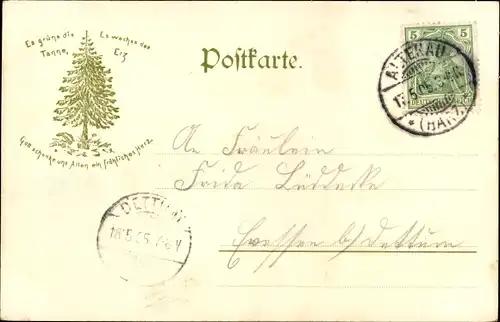 Es grüne die Tanne,
Es wachse das Erz
Gott schenke uns Allen ein fröhliches Herz
Postkarte.
5 5
ALTENAU
17.5.05.
* (HARZ) *
An Fräulein
Frida Lüddecke
b/ Dettum
DETTUM
18.5.05.